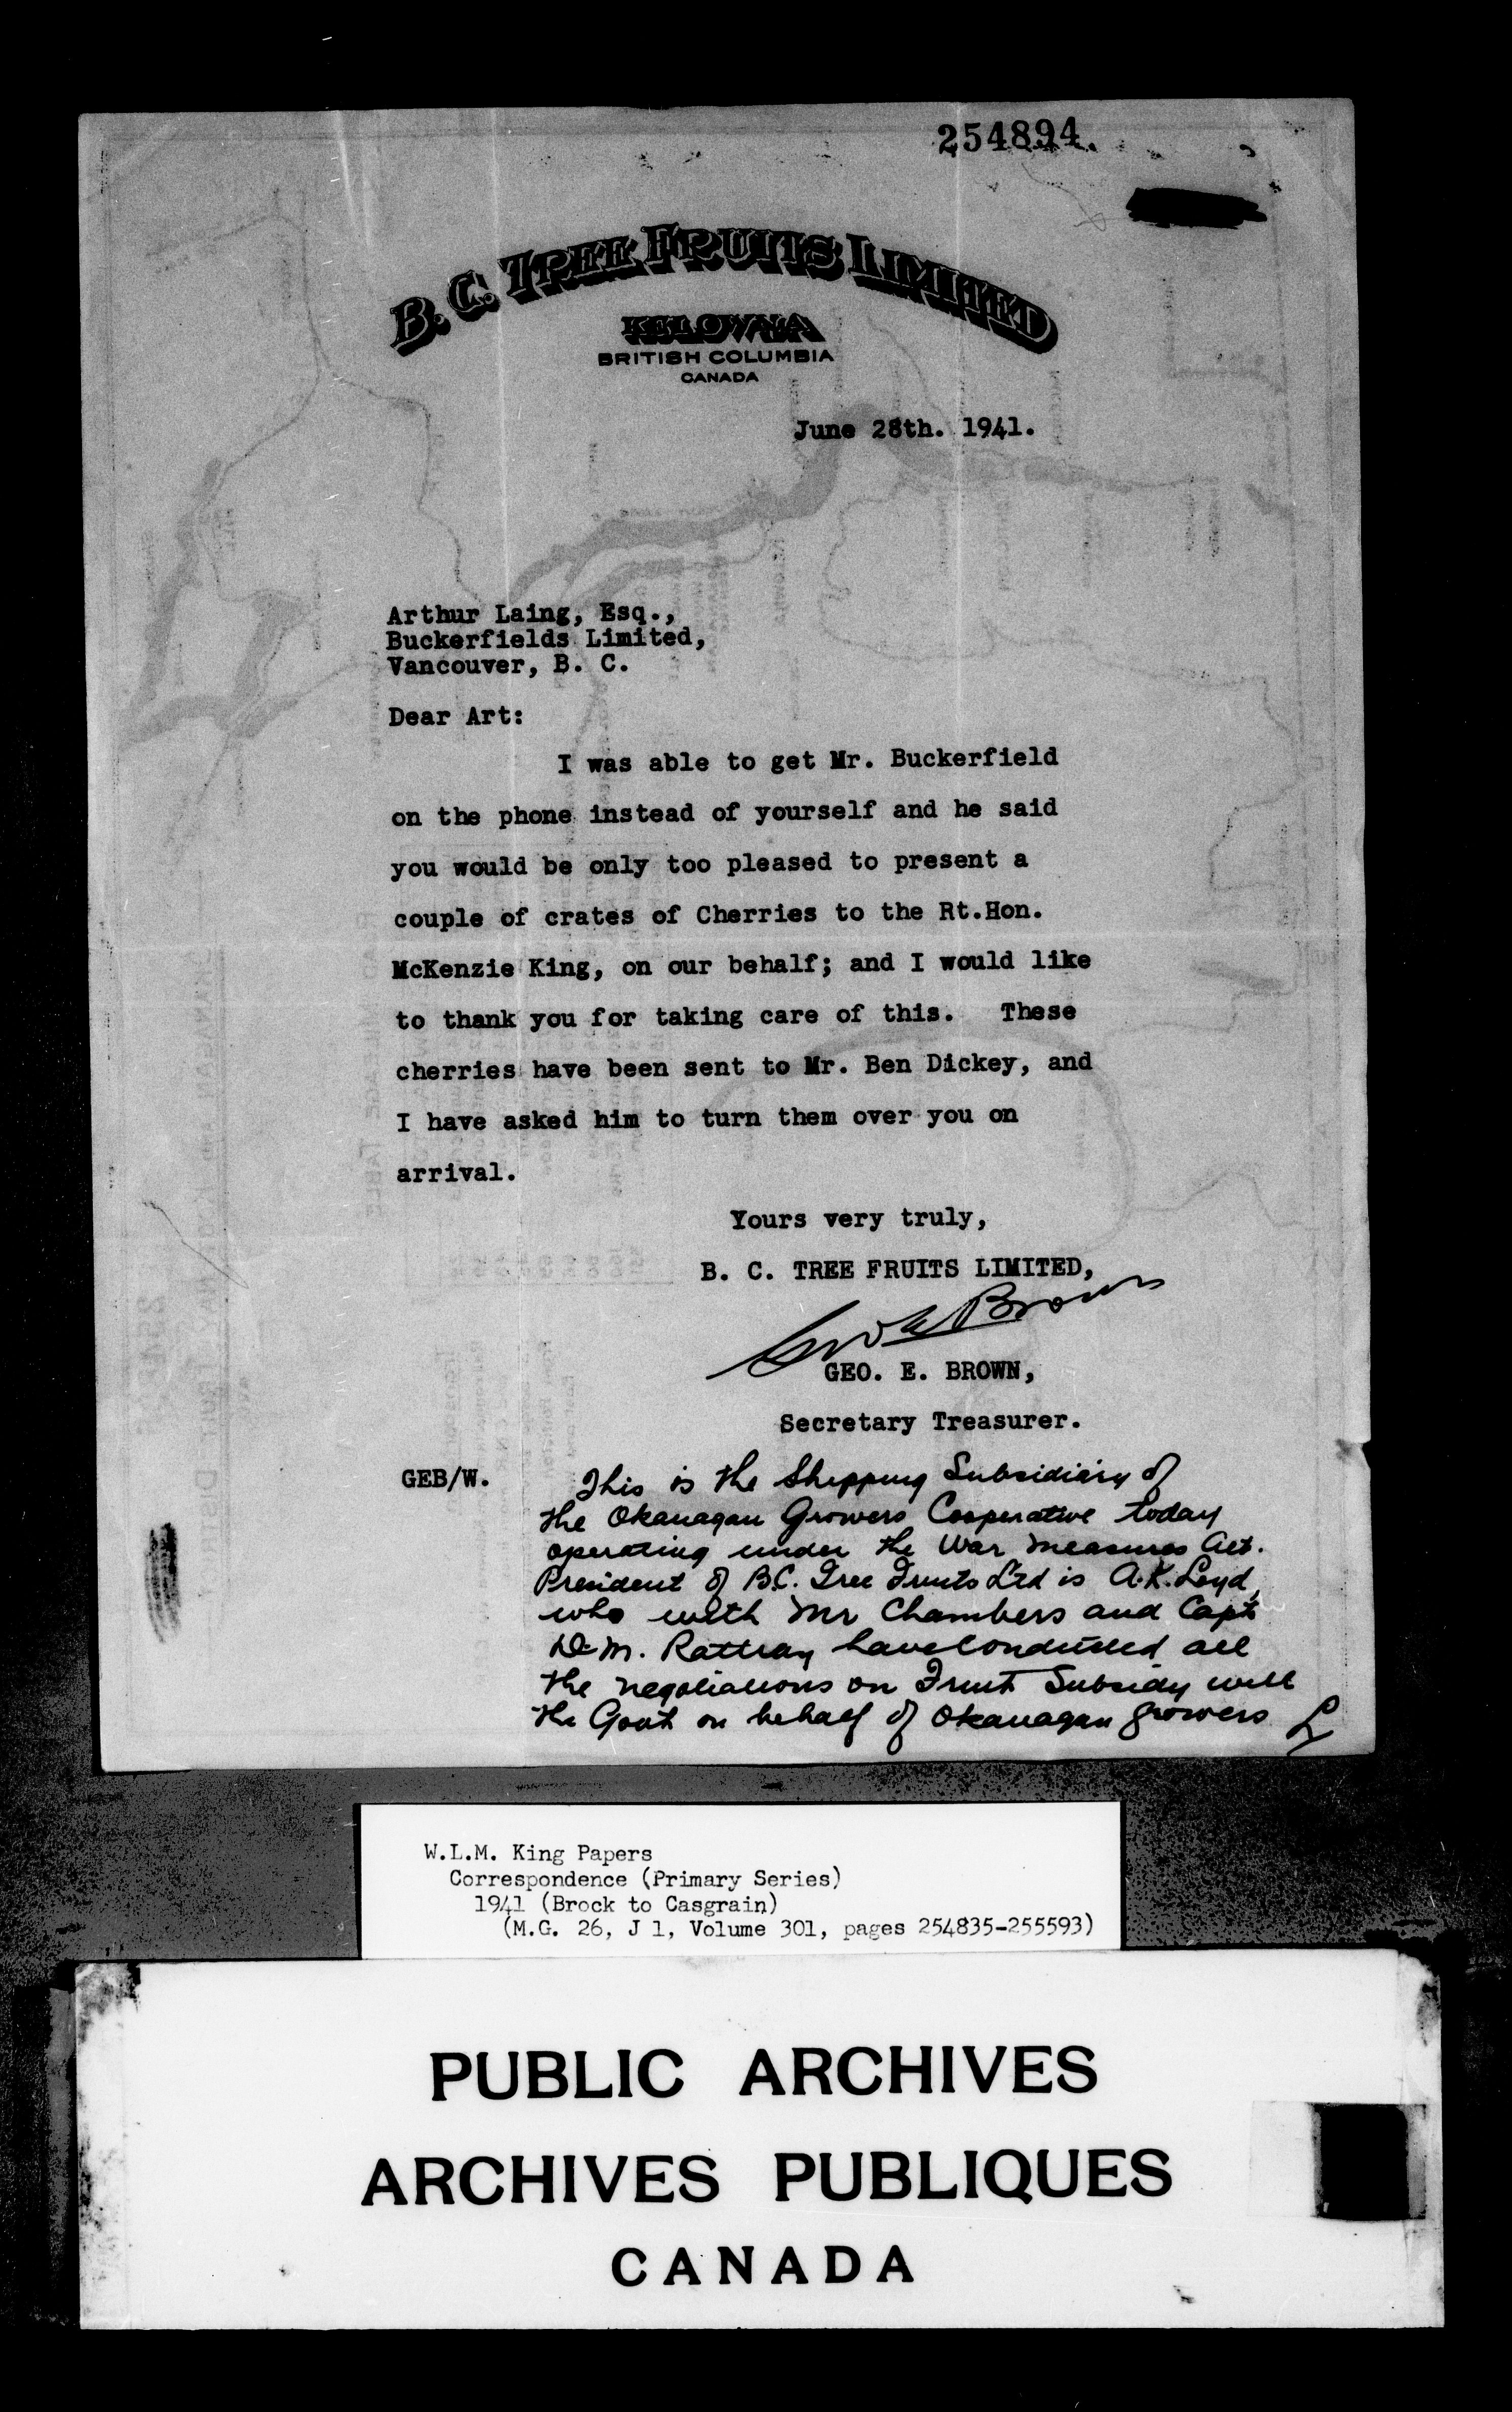 254894.
B. C. TREE FRUITS LIMITED
KELOWNA
BRITISH COLUMBIA
CANADA
June 28th. 1941.
Arthur Laing, Esq.,
Buckerfields Limited,
Vancouver, B. C.
Dear Art:
I was able to get Mr. Buckerfield
on the phone instead of yourself and he said
you would be only too pleased to present a
couple of crates of Cherries to the Rt.Hon.
McKenzie King, on our behalf; and I would like
to thank you for taking care of this. These
cherries have been sent to Mr. Ben Dickey, and
I have asked him to turn them over you on
arrival.
Yours very truly,
B. C. TREE FRUITS LIMITED,
Geo E Brown
GEO. E. BROWN,
Secretary Treasurer.
GEB/W.
This is the Shipping Subsidiary of
the Okanagan Growers Cooperative today
operating under the War Measures Act.
President of B.C. Tree Fruits Ltd is A.K. Loyd,
who with Mr Chambers and Capt
D.M. Rattray have conducted all
the negotiations on Fruit Subsidy with
the Govt on behalf of Okanagan growers L
W.L.M. King Papers
Correspondence (Primary Series)
1941 (Brock to Casgrain)
(M.G. 26, J 1, Volume 301, pages 254835-255593)
PUBLIC ARCHIVES
ARCHIVES PUBLIQUES
CANADA